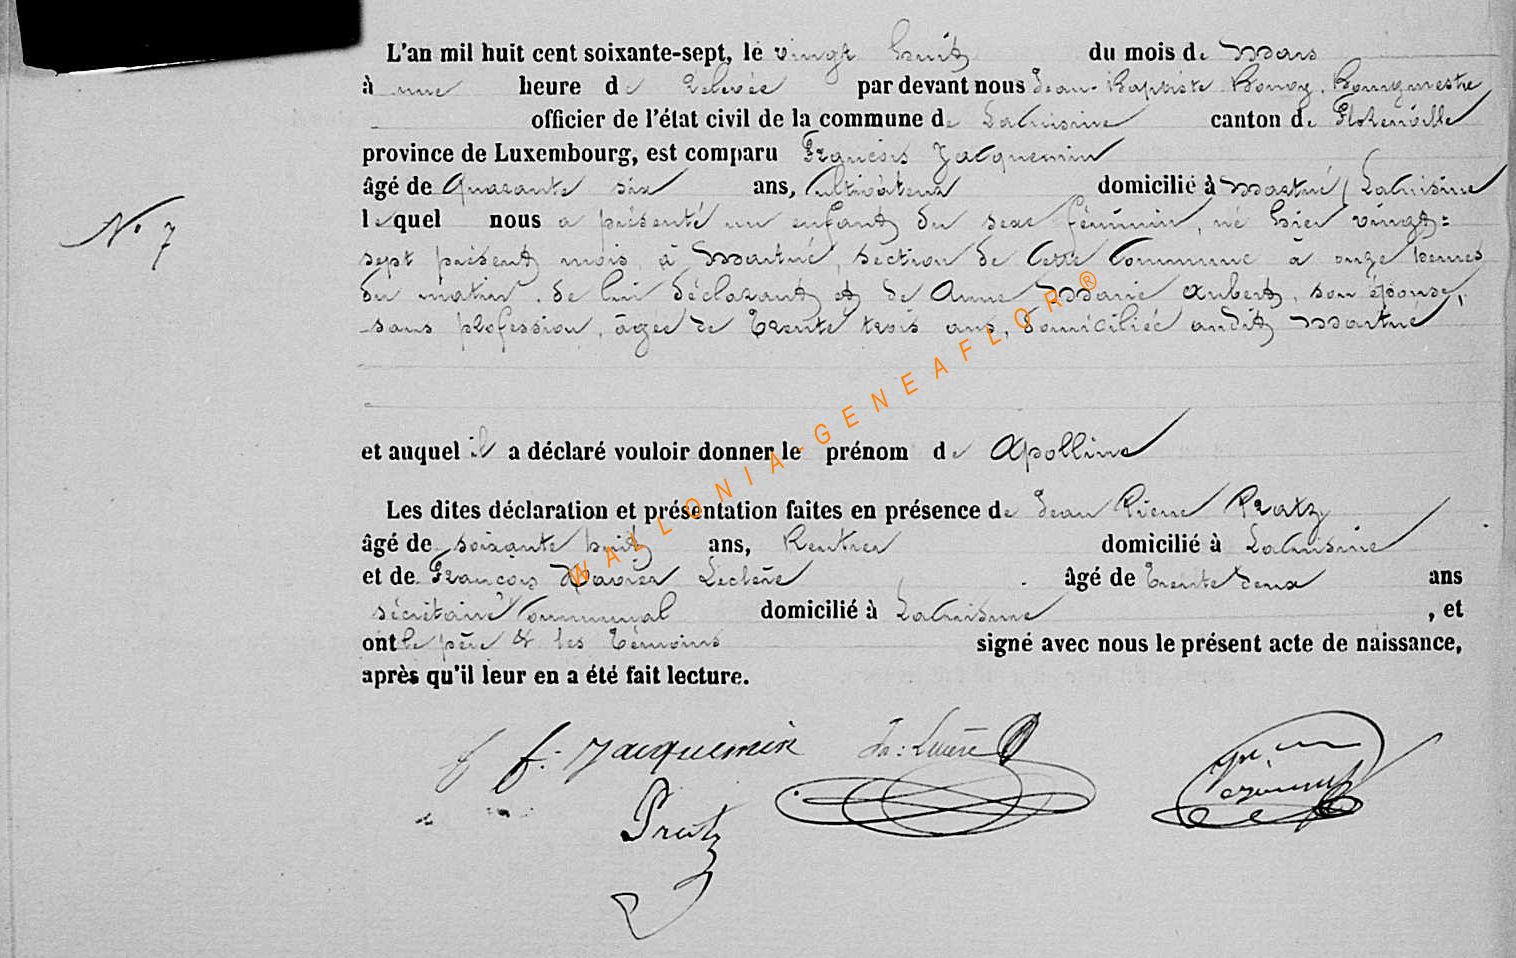 L'an mil huit cent soixante-sept, le vingt huit du mois de Mars
à une heure de relevée par devant nous Jean-Baptiste Bourgmestre
officier de l'état civil de la commune de Lacuisine canton de Florenville
province de Luxembourg, est comparu François Jacquemin
âgé de quarante six ans, Cultivateur domicilié à Martué / Lacuisine
lequel nous a présenté un enfant du sexe féminin, né hier vingt=
N° 7
sept présent mois, à Martué, section de cette Commune à onze heures
du matin, de lui déclarant et de Anne Marie Aubert, son épouse,
sans profession, âgée de trente trois ans, domiciliée audit Martué
et auquel il a déclaré vouloir donner le prénom de Apolline
Les dites déclaration et présentation faites en présence de Jean Pierre Pratz
âgé de soixante huit ans, Rentier domicilié à Lacuisine
et de François Xavier Leclère âgé de trente deux ans
secrétaire Communal domicilié à Lacuisine , et
ont le père & les témoins signé avec nous le présent acte de naissance,
après qu'il leur en a été fait lecture.
f. Jacquemin
Pratz
WALLONIA-GENEAFLOR®